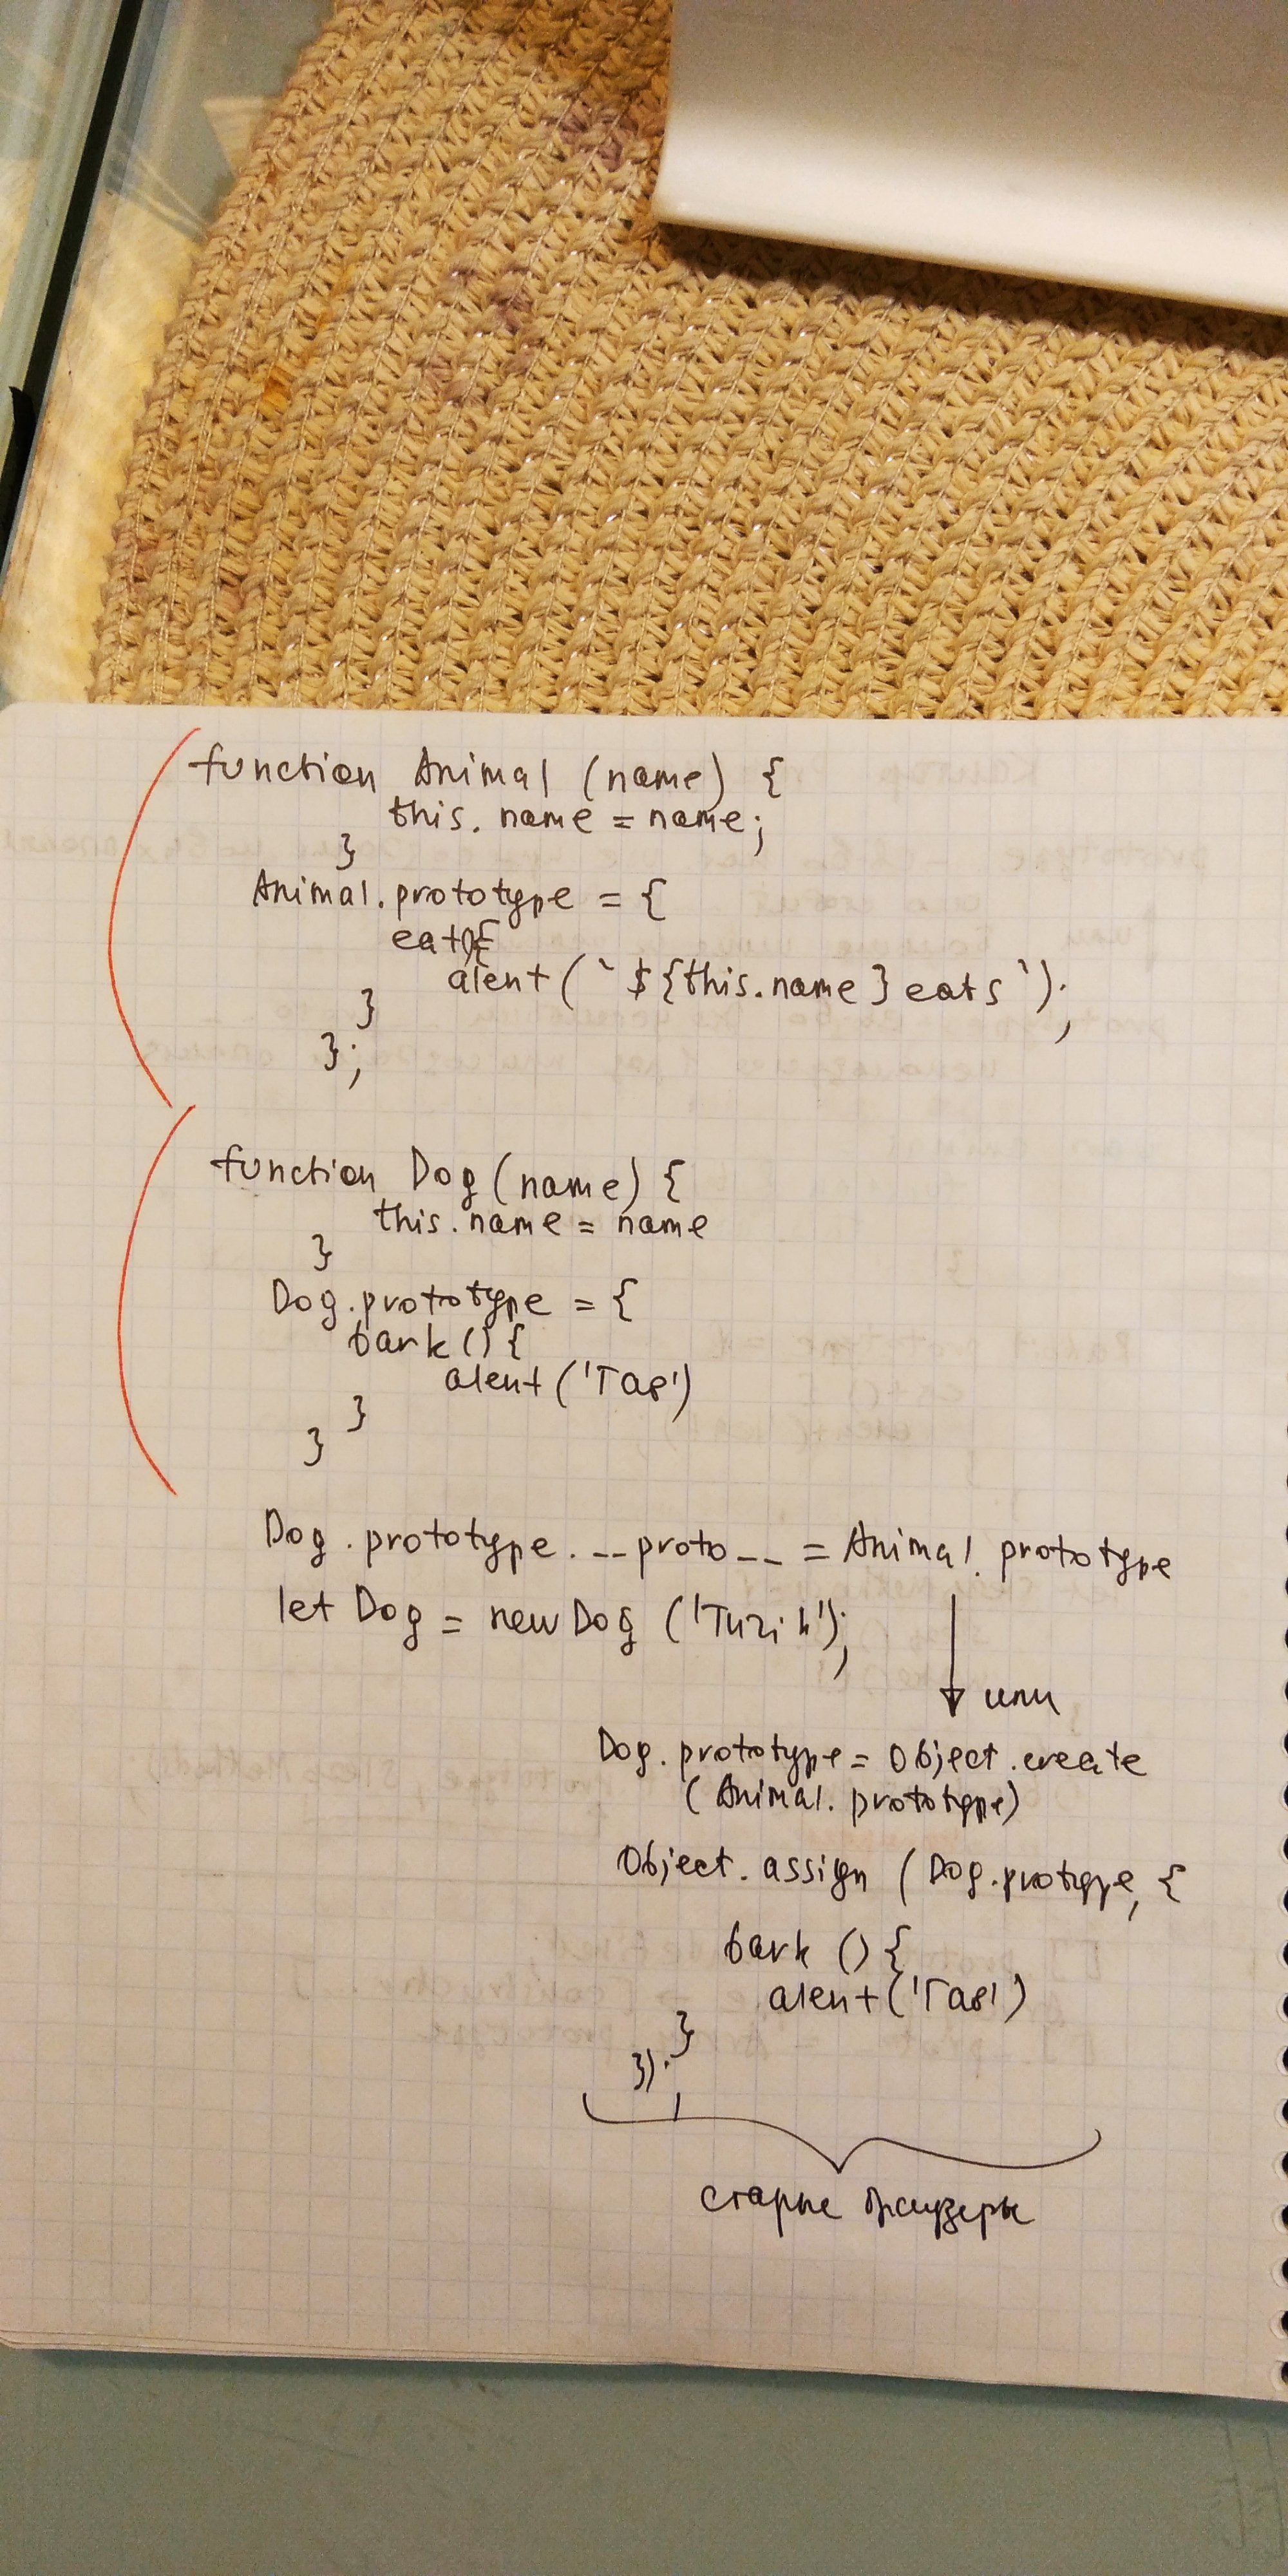 function Animal (name) {
this.name = name;
}
Animal.prototype = {
eat(){
alert(`${this.name} eats`);
}
};
function Dog (name) {
this.name = name
}
Dog.prototype = {
bark () {
alert ('Гав')
}
}
Dog.prototype.__proto__ = Animal.prototype
let Dog = new Dog ('Tuzik');
или
Dog.prototype = Object.create
(Animal.prototype)
Object.assign (Dog.protype, {
bark () {
alert ('Гав')
}
});
старые браузеры